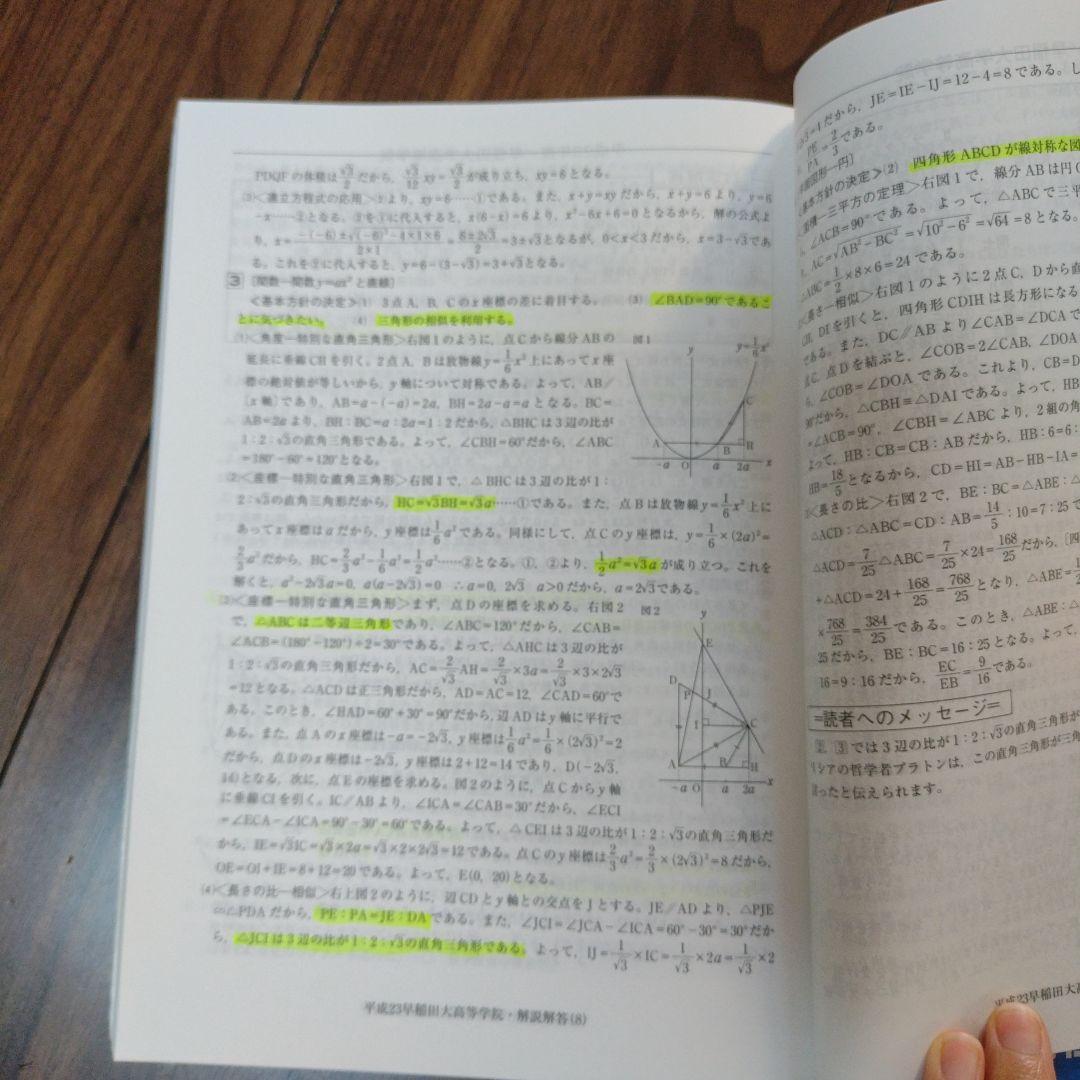 PDQFの体積は√3/2だから,√3/12 xy=√3/2が成り立ち,xy=6となる。
③<連立方程式の応用>②より,xy=6……①である。また,x+y=xyだから,x+y=6より,y=6
-x……②となる。②を①に代入すると,x(6-x)=6より,x²-6x+6=0となるから,解の公式よ
り,x=(-(-6)±√((-6)²-4×1×6))/(2×1)=(6±2√3)/2=3±√3となるが,0<x<3だから,x=3-√3であ
る。これを②に代入すると,y=6-(3-√3)=3+√3となる。
3 〔関数—関数y=ax²と直線〕
≪基本方針の決定≫(1) 3点A,B,Cのx座標の差に着目する。 (3) ∠BAD=90°であるこ
とに気づきたい。 (4) 三角形の相似を利用する。
(1)<角度—特別な直角三角形>右図1のように,点Cから線分ABの
延長に垂線CHを引く。2点A,Bは放物線y=1/6x²上にあってx座
標の絶対値が等しいから,y軸について対称である。よって,AB∥
〔x軸〕であり,AB=a-(-a)=2a,BH=2a-a=aとなる。BC=
AB=2aより,BH:BC=a:2a=1:2だから,△BHCは3辺の比が
1:2:√3の直角三角形である。よって,∠CBH=60°だから,∠ABC
=180°-60°=120°となる。
図1
y
y=1/6x²
C
A
B
H
-a
O
a
2a
x
(2)<座標—特別な直角三角形>右図1で,△BHCは3辺の比が1:
2:√3の直角三角形だから,HC=√3BH=√3a……①である。また,点Bは放物線y=1/6x²上に
あってx座標はaだから,y座標は1/6a²である。同様にして,点Cのy座標は,y=1/6×(2a)²=
2/3a²だから,HC=2/3a²-1/6a²=1/2a²……②となる。①,②より,1/2a²=√3aが成り立つ。これを
解くと,a²-2√3a=0,a(a-2√3)=0 ∴a=0,2√3 a>0だから,a=2√3である。
(3)<座標—特別な直角三角形>まず,点Dの座標を求める。右図2
で,△ABCは二等辺三角形であり,∠ABC=120°だから,∠CAB=
∠ACB=(180°-120°)÷2=30°である。よって,△AHCは3辺の比が
1:2:√3の直角三角形だから,AC=2/√3AH=2/√3×3a=2/√3×3×2√3
=12となる。△ACDは正三角形だから,AD=AC=12,∠CAD=60°で
ある。このとき,∠HAD=60°+30°=90°だから,辺ADはy軸に平行で
ある。また,点Aのx座標は-a=-2√3,y座標は1/6a²=1/6×(2√3)²=2
だから,点Dのx座標は-2√3,y座標は2+12=14であり,D(-2√3,
14)となる。次に,点Eの座標を求める。図2のように,点Cからy軸
に垂線CIを引く。IC∥ABより,∠ICA=∠CAB=30°だから,∠ECI
=∠ECA-∠ICA=90°-30°=60°である。よって,△CEIは3辺の比が1:2:√3の直角三角形だ
から,IE=√3IC=√3×2a=√3×2×2√3=12である。点Cのy座標は2/3a²=2/3×(2√3)²=8だから,
OE=OI+IE=8+12=20である。よって,E(0, 20)となる。
図2
y
E
D
P
J
I
C
A
B
H
-a
O
a
2a
x
(4)<長さの比—相似>右上図2のように,辺CDとy軸との交点をJとする。JE∥ADより,△PJE
∽△PDAだから,PE:PA=JE:DAである。また,∠JCI=∠JCA-∠ICA=60°-30°=30°だか
ら,△JCIは3辺の比が1:2:√3の直角三角形である。よって,IJ=1/√3×IC=1/√3×2a=1/√3×2
平成23早稲田大高等学院・解説解答(8)
√3=4だから,JE=IE-IJ=12-4=8である。し
PE/PA=2/3である。
図形—円〕
基本方針の決定≫(2) 四角形ABCDが線対称な図
面積—三平方の定理>右図1で,線分ABは円O
∠ACB=90°である。よって,△ABCで三平
AC=√(AB²-BC²)=√(10²-6²)=√64=8となる。
△ABC=1/2×8×6=24である。
長さ—相似>右図1のように2点C,Dから直
DIを引くと,四角形CDIHは長方形になる
である。また,DC∥ABより∠CAB=∠DCAで
点Dを結ぶと,∠COB=2∠CAB,∠DOA
∠COB=∠DOAである。これより,CB=D
90°だから,△CBH≡△DAIである。よって,HB
=∠ACB=90°,∠CBH=∠ABCより,2組の角
よって,HB:CB=CB:ABだから,HB:6=6:
HB=18/5となるから,CD=HI=AB-HB-IA=
長さの比>右図2で,BE:BC=△ABE:△
△ACD:△ABC=CD:AB=14/5:10=7:25で
△ACD=7/25△ABC=7/25×24=168/25だから,〔四
+△ACD=24+168/25=768/25となり,△ABE=1/2
×768/25=384/25である。このとき,△ABE:△
25だから,BE:BC=16:25となる。よって,
16=9:16だから,EC/EB=9/16である。
=読者へのメッセージ=
3では3辺の比が1:2:√3の直角三角形が
リシアの哲学者プラトンは,この直角三角形が三角
ったと伝えられます。
平成23早稲田大高